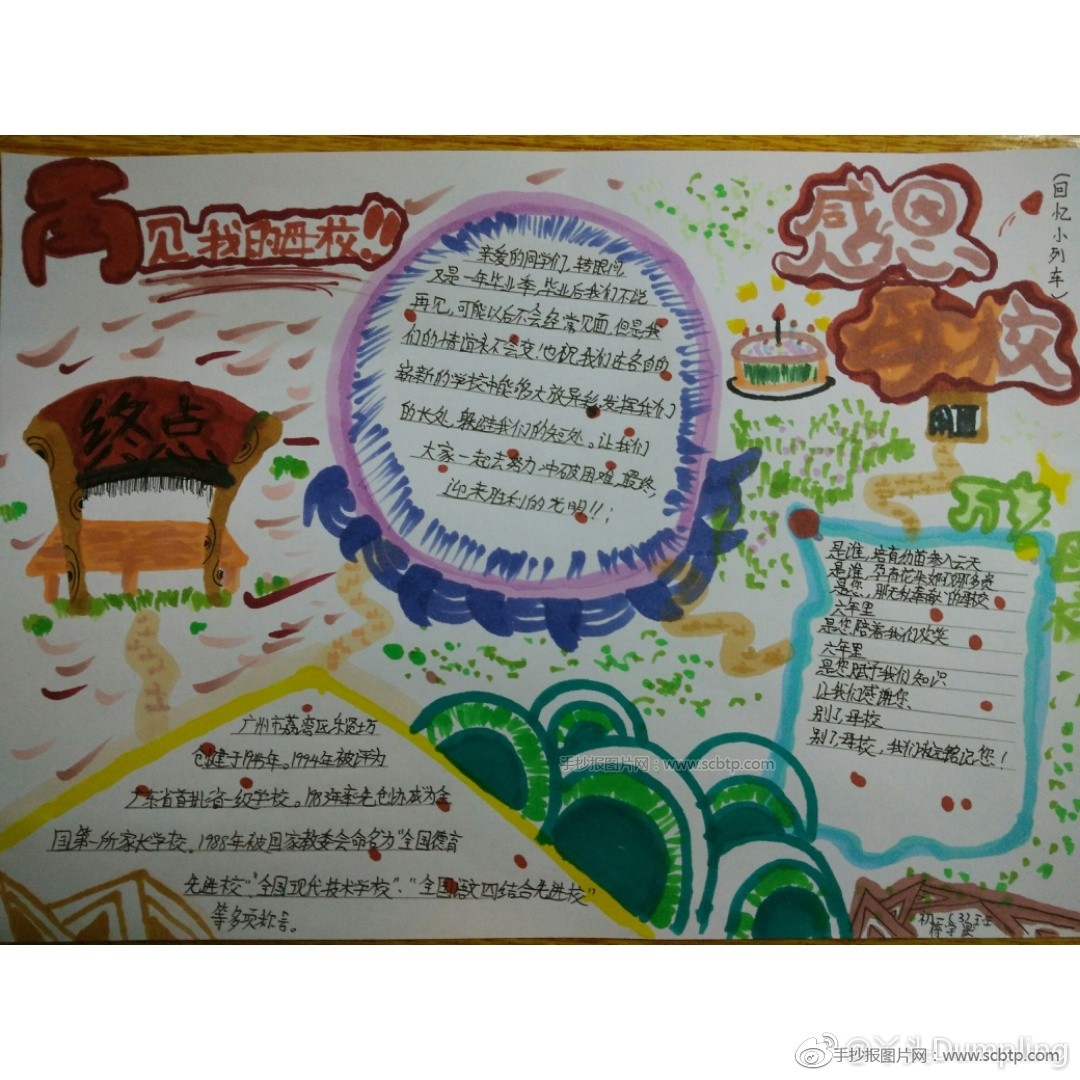 再见我的母校!!
感恩
母校
(回忆小列车)
亲爱的同学们，转眼间
又是一年毕业季，毕业后我们不说
再见，可能以后不会经常见面，但是我
们的情谊永不会变！也祝我们在各自的
崭新的学校中能够大放异彩，发挥我们
的长处，躲避我们的短处。让我们
大家一起去努力，冲破困难，最终，
迎来胜利的光明!!；
终点
是谁，培育幼苗参入云天
是谁，孕育花朵
是您，别无
六年里
是您陪着我们欢笑
六年里
是您赋予我们知识
让我们感谢您
别了母校
别了母校，我们永远铭记您！
母校
广州市荔湾区乐贤坊
创建于1945年。1994年被评为
广东省首批省一级学校。1983年率先创办成为全
国第一所家长学校。1988年被国家教委会命名为“全国德育
先进校”“全国现代技术学校”、“全国语文四结合先进校”
等多项称号。
手抄报图片网：www.scbtp.com
@丫头Dumpling
手抄报图片网：www.scbtp.com